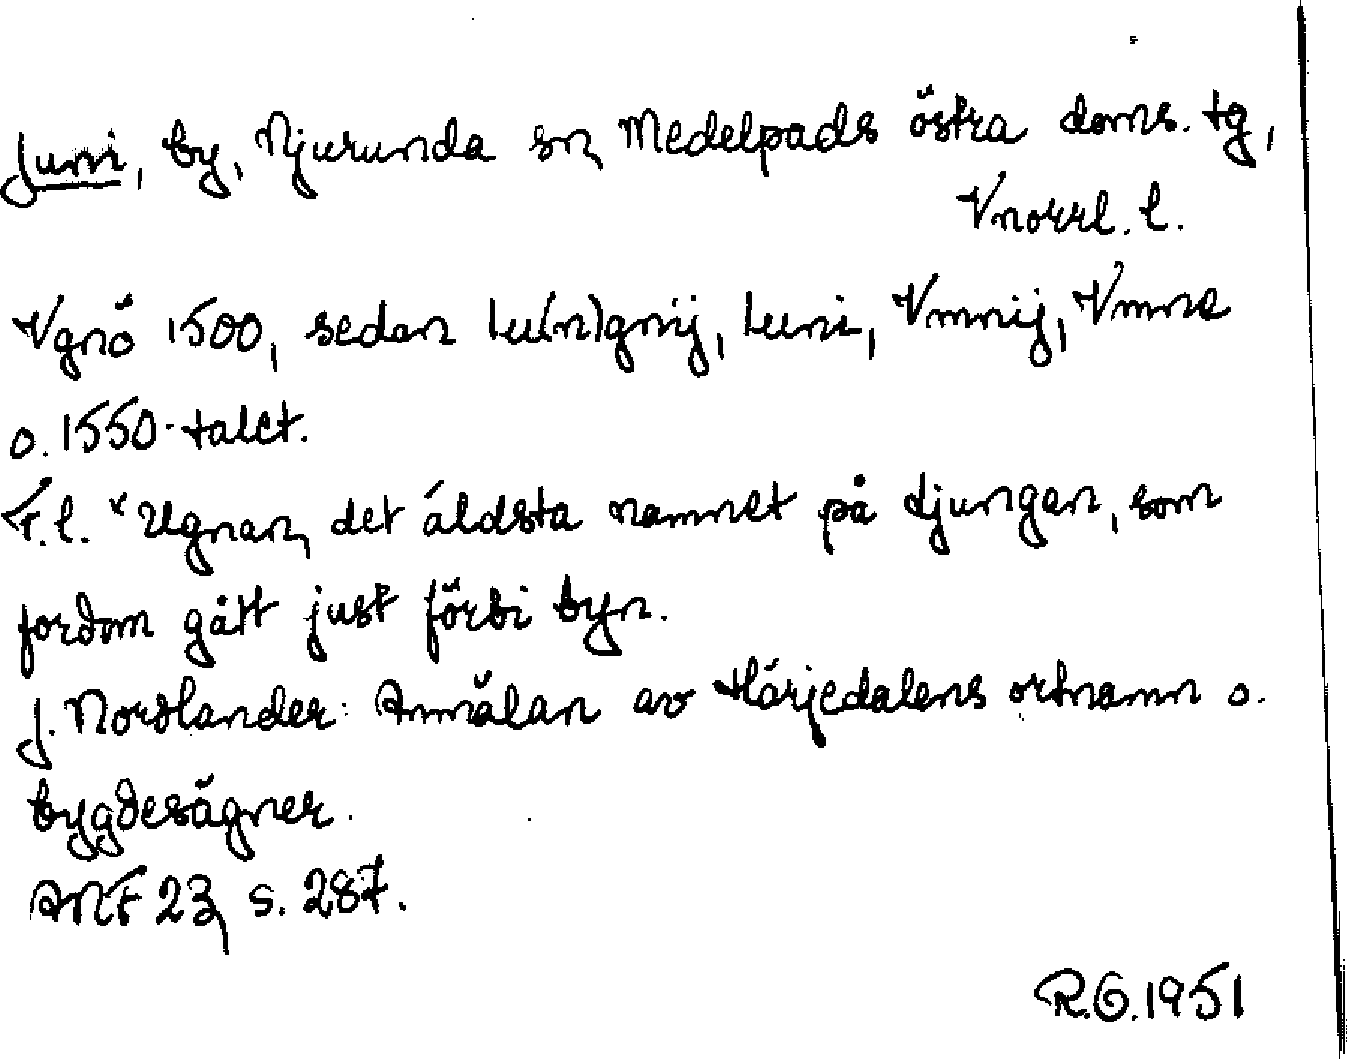 Juni, by, Njurunda sn, Medelpads östra doms. tg,
Vnorrl. l.
Vgnö 1500, sedan Iu(n)gnij, Iuni, Vmnij, Vmne
o. 1550-talet.
F.l. *Ugnan, det äldsta namnet på Ljungan, som
fordom gått just förbi byn.
J. Nordlander: Anmälan av Härjedalens ortnamn o.
bygdesägner.
ANF 23, s. 287.
R.O. 1951